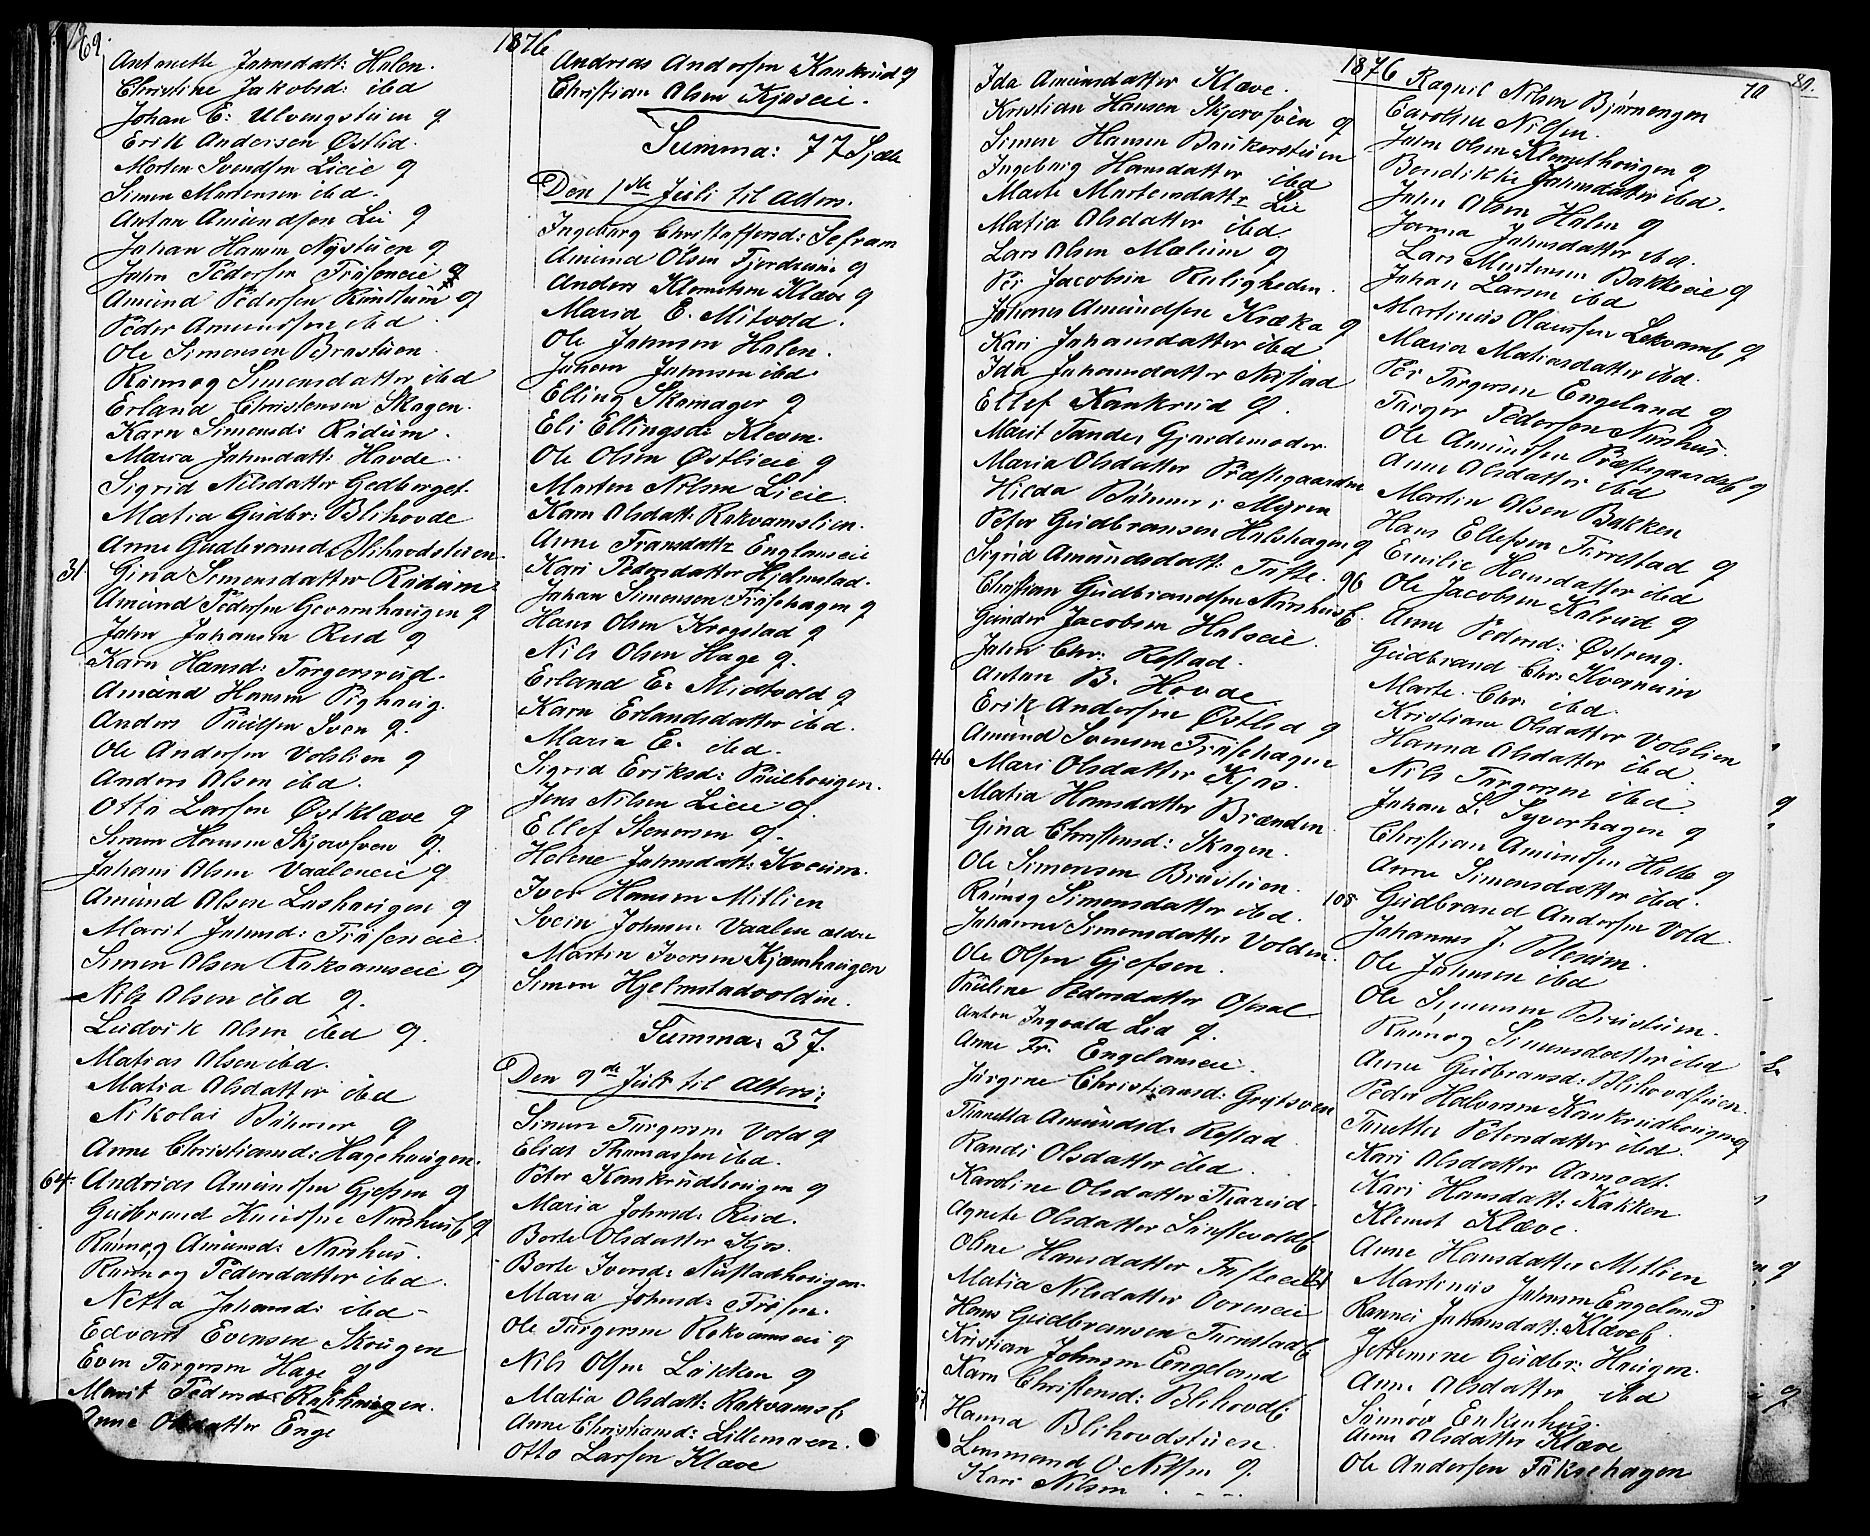 69.
1876
Antonette Johnsdatt: Holen.
Christine Jakobsd: ibd
Johan E: Ulvengstuen q
Erik Andersen Østlid.
Morten Svendsen Lieie q
Simen Mortensen ibd.
Anton Amundsen Lie q
Johan Hansen Nystuen q
John Pedersen Fröseneie q
Amund Pedersen Rundtum q
Peder Amundsen ibd
Ole Simensen Brustuen
Rönnog Simensdatter ibd
Erland Christensen Skagen.
Karn Simensd: Rudum.
Maria Johnsdatt: Hovde.
Sigrid Nilsdatter Gedberget.
Matia Gudbr: Blihovde
Anne Gudbrandsd: Blihovdstuen.
31 Gina Simensdatter Rudum
Amund Pedersen Gevarnhaugen q
John Johansen Rud q
Karn Hansd: Torgersrud.
Amund Hansen Pighaug.
Anders Paulsen Sven q.
Ole Andersen Volslien q
Anders Olsen ibd.
Otto Larsen Østklæve q
Simen Hansen Skjorvsven q.
Johans Olsen Vaaleneie q
Amund Olsen Lashaugen q
Marit Johnsd: Fröseneie
Simen Olsen Rukvamseie q
Nils Olsen ibd q.
Ludvik Olsen ibd q.
Matias Olsen ibd.
Matia Olsdatter ibd
Nikolai Bühmer q
Anne Christiansd: Hagehaugen.
64. Andrias Amundsen Gjefsen q
Gudbrand Knudsen Narshusb q
Rönnog Amunsd: Narshus.
Rannog Pedersdatter ibd.
Netta Johansd: ibd
Edvart Evensen Skougen
Even Torgersen Hage q
Marit Pedersd: Raschaugen.
Anne Olsdatter Enge
Andreas Andersen Kankrud q
Christian Olsen Kjoseie.
Summa: 77 Sjæle
Den 1ste Juli til Alters.
Ingeborg Christoffersd: Sefram
Amund Olsen Fjordheim q
Anders Klemetsen Klæve q
Maria E. Mitvold.
Ole Johnsen Holen.
Johan Johnsen ibd.
Elling Skamager q
Eli Ellingsd: Kleven.
Ole Olsen Østlieie q
Morten Nilsen Lieie.
Karn Olsdatt: Rukvamslien.
Anne Fransdattr Englanseie
Kari Pedersdatter Hjelmstad.
Johan Simensen Fröschagen q
Hans Olsen Krogstad q
Nils Olsen Hage q.
Erland E. Midtvold q
Karn Erlandsdatter ibd.
Maria E. ibd.
Sigrid Eriksd: Paulhougen.
Jens Nilsen Lieie q.
Ellef Stenersen q.
Helene Johnsdatt: Kveum.
Iver Hansen Mitlien
Svein Johnsen Vaalen ældre
Martin Iversen Kjæmhaugen
Simen Hjelmstadvolden.
Summa: 37.
Den 9de Juli til Alters:
Simen Torgersen Vold q
Elias Thomassen ibd.
Peter Kankrudhougen q
Maria Johnsd: Rud.
Berte Olsdatter Kjos.
Berte Iversd: Nustadhougen.
Maria Johnsd: Frösen.
Ole Torgersen Rukvamseie q
Nils Olsen Løkken q
Matia Olsdatt: Rukvamsb
Anne Christiansd: Lillemoen.
Otto Larsen Klæve
1876
70
80.
Ida Amunsdatter Klæve.
Kristian Hansen Skjorvsven q
Simen Hansen Baukerstuen
Ingeborg Hansdatter ibd
Marte Martensdattr Lie
Matia Olsdatter ibd.
Lars Olsen Mælum q
Per Jacobsen Roligheden.
Johannes Amundsen Kræke q
Kari Johansdatter ibd
Ida Johannsdatter Nustad
Ellef Kankrud q.
Marit Tandes Gjordemoder
Maria Olsdatter Præstegaarden
Hilda Bühmer i Myren
Peter Gudbransen Halshagen q
Sigrid Amundsdatt: Tufte. 96
Christian Gudbrandsen Narshusb.
Gunder Jacobsen Halseie.
John Chr: Rostad.
Anton B. Hovde
Erik Andersen Østlid q
Amund Svensen Fröschagen
46 Mari Olsdatter Kjos.
Matia Hansdatter Brænden
Gina Christensd: Skagen.
Ole Simensen Brustuen.
Rönnog Simensdatter ibd.
Johanne Simensdatter Volden.
Ole Olsen Gjefsen.
Pauline Pedersdatter Opsal
Anton Ingvald Lid q.
Anne Fr. Englanseie.
Jörgine Christiansd: Grytsven
Thonetta Amundsd: Rostad
Randi Olsdatter ibd.
Karoline Olsdatter Thorud.
Agnete Olsdatter
Oline Hansdatter Tufteeie
Matia Nilsdatter
Hans Gudbransen Turustadb
Kristian Johnsen Engeland
Karn Christensd: Blihovdb.
Hanna Blihovdstuen
O. Nilsen q.
Kari Nilsen
Ragnil Nilsen Bjørnengen
Caroline Nilsen.
John Olsen Klemethougen q
Bendikke Johnsdatter ibd.
John Olsen Holen q
Jonna Johnsdatter ibd.
Lars Mortensen Bakkeeie q
Johan Larsen ibd
Martinus Olaussen Lekvamb q
Maria Matiasdatter ibd.
Per Torgersen Engeland q
Torger Pedersen Narshus.
Ole Amundsen Præstegaardsb q
Anne Olsdatter ibd
Martin Olsen Bakken
Hans Ellefsen Turrestad q
Emilie Hansdatter ibd
Ole Jacobsen Kalrud q
Anne Pedersd: Østreng.
Gudbrand Chr: Kvernum
Marte Chr. ibd.
Kristiane Olsdatter Volslien
Hanna Olsdatter ibd.
Nils Torgersen ibd.
Johan L. Syverhagen q
Christian Amundsen Halle q
Anne Simensdatter ibd.
108 Gudbrand Andersen Vold
Johannes J. Blessum.
Ole Johnsen ibd
Ole Simensen Brustuen.
Rannog Simensdatter ibd
Anne Gudbransd: Blihovdstuen.
Peder Halvorsen Kankrudhougen q
Tonette Petersdatter ibd.
Kari Olsdatter Aamodt.
Kari Hansdatt: Kakken.
Klemet Klæve.
Anne Hansdatter Mitlien
121 Martinus Johnsen Engeland
Rannei Johansdatt: Klæveb.
Jettemine Gudbr: Haugen.
Anne Olsdatter ibd
Synnøv Enkenhus.
Anne Olsdatter Klæve
Ole Andersen Fukschagen